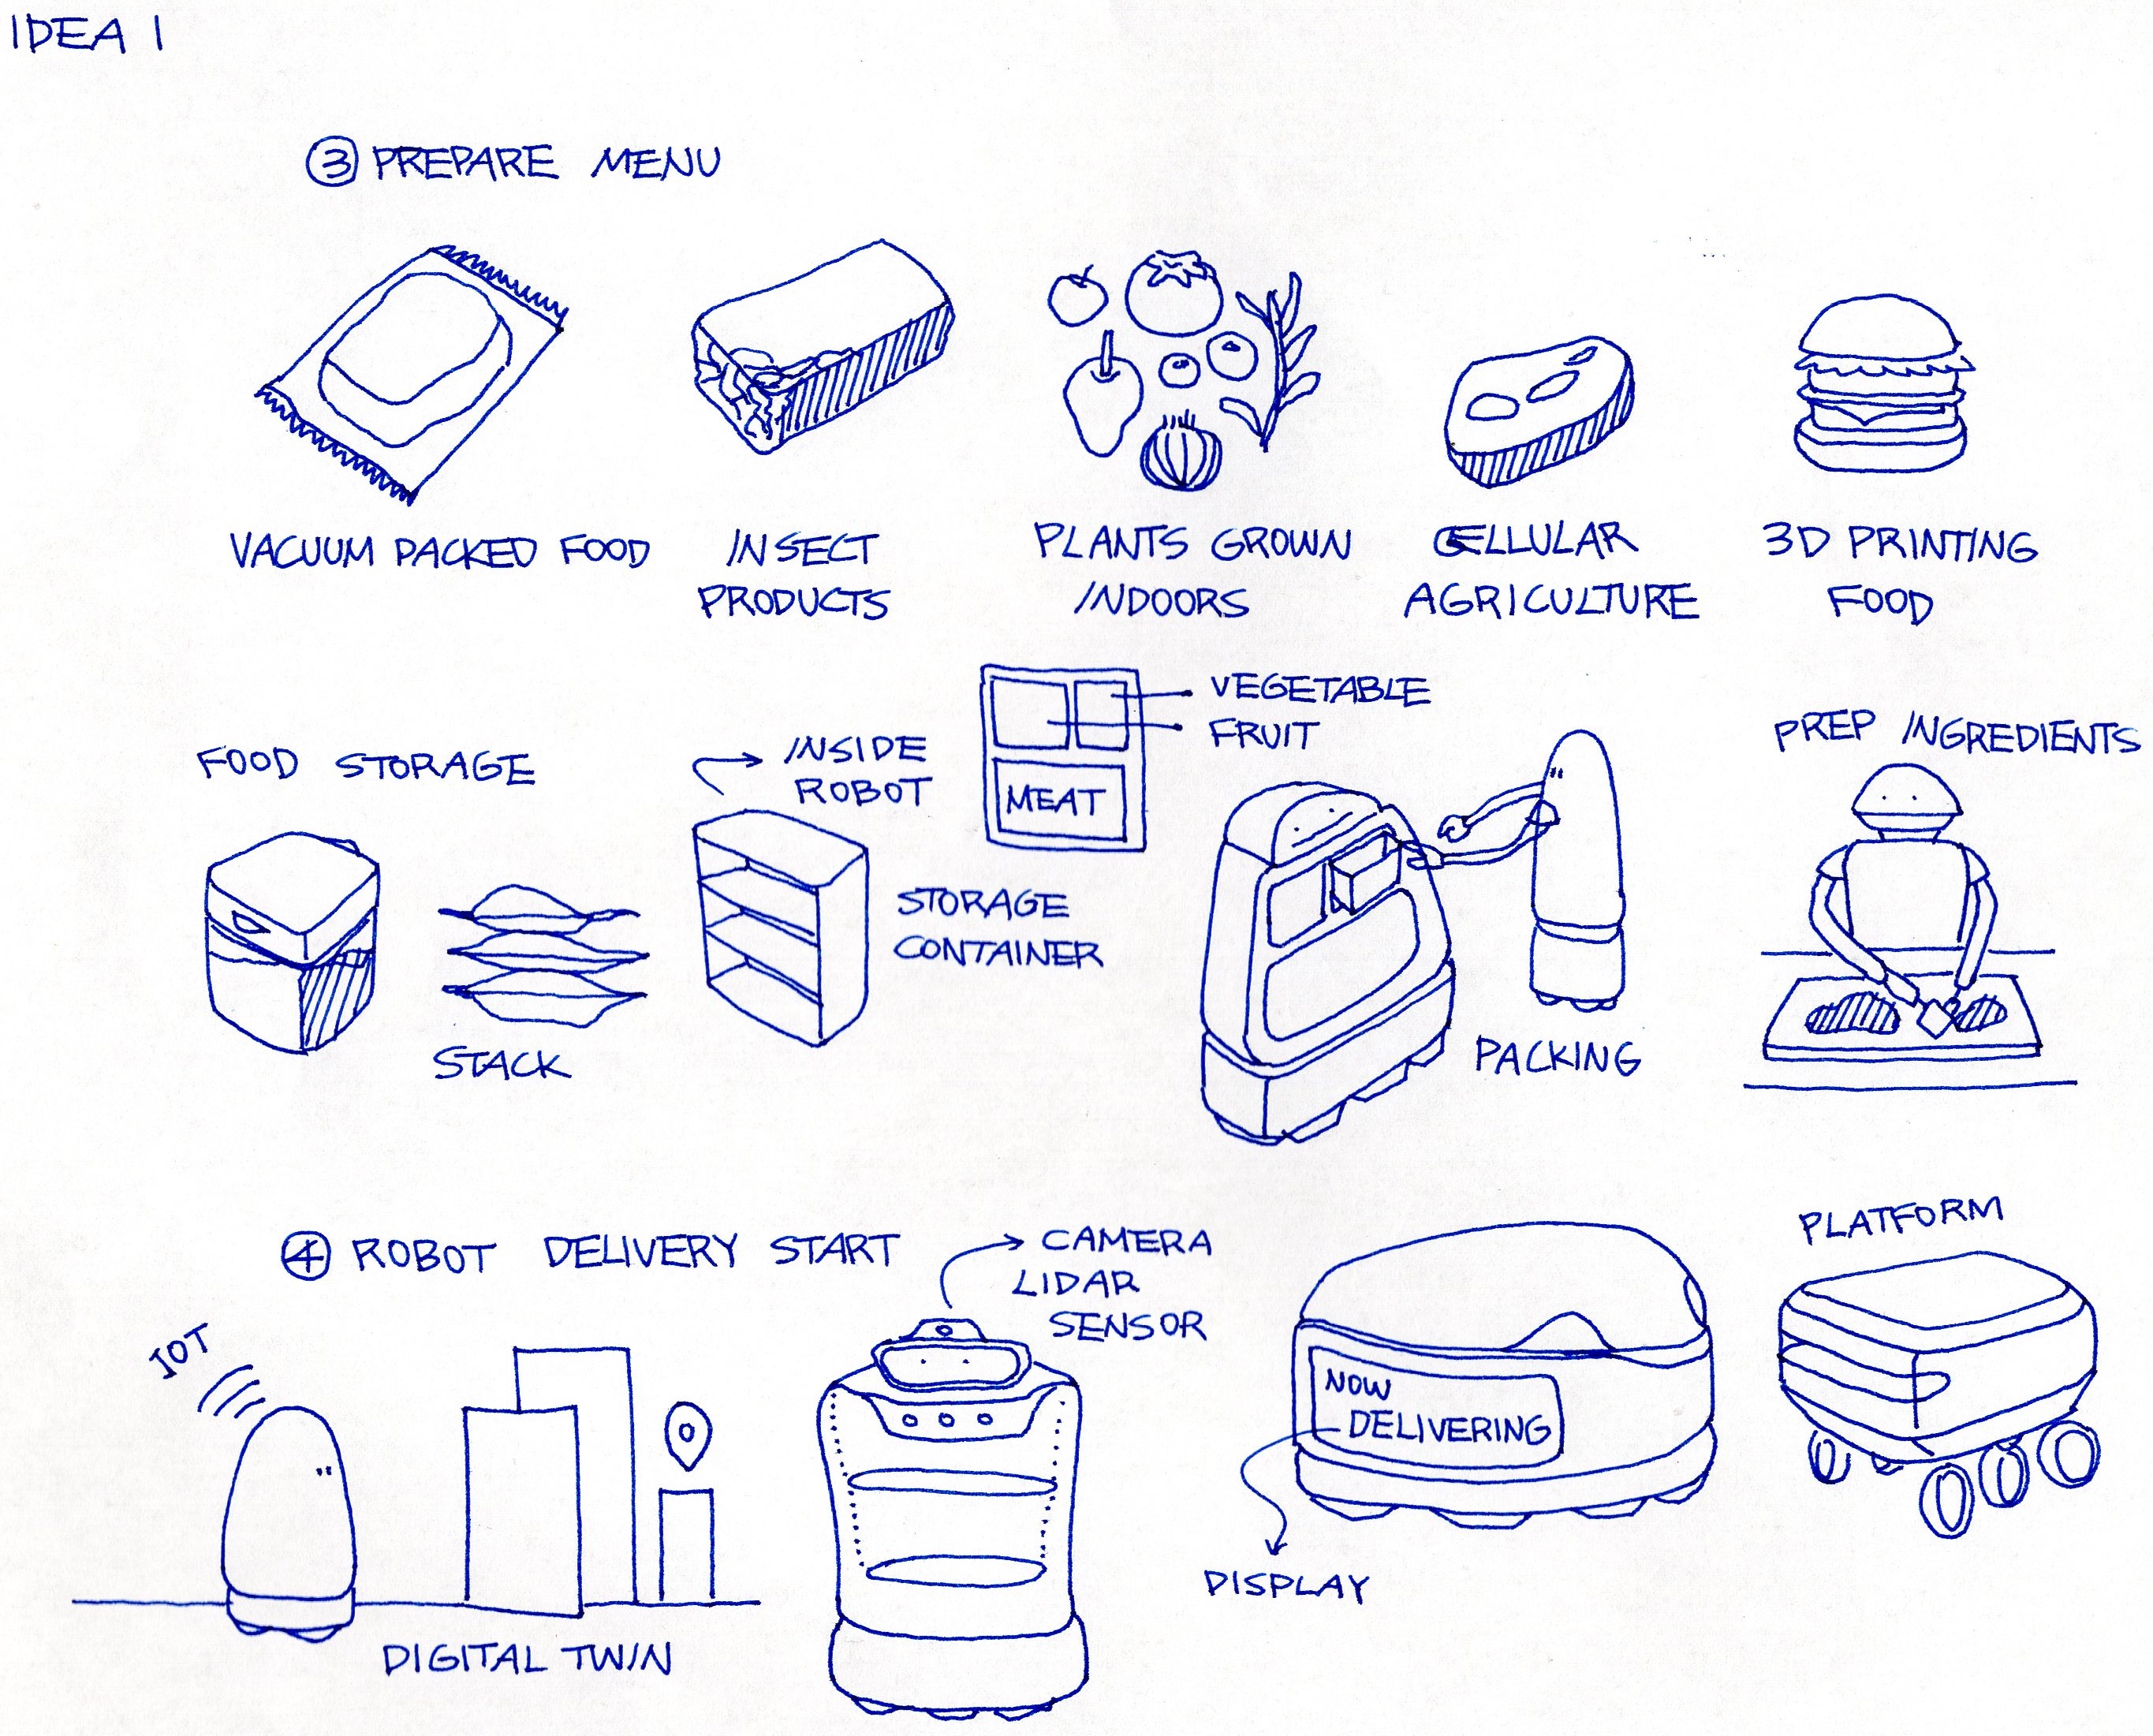 IDEA 1
③ PREPARE MENU
VACUUM PACKED FOOD
INSECT
PRODUCTS
PLANTS GROWN
INDOORS
CELLULAR
AGRICULTURE
3D PRINTING
FOOD
VEGETABLE
FRUIT
MEAT
FOOD STORAGE
INSIDE
ROBOT
STACK
STORAGE
CONTAINER
PACKING
PREP INGREDIENTS
④ ROBOT DELIVERY START
IOT
DIGITAL TWIN
CAMERA
LIDAR
SENSOR
NOW
DELIVERING
DISPLAY
PLATFORM